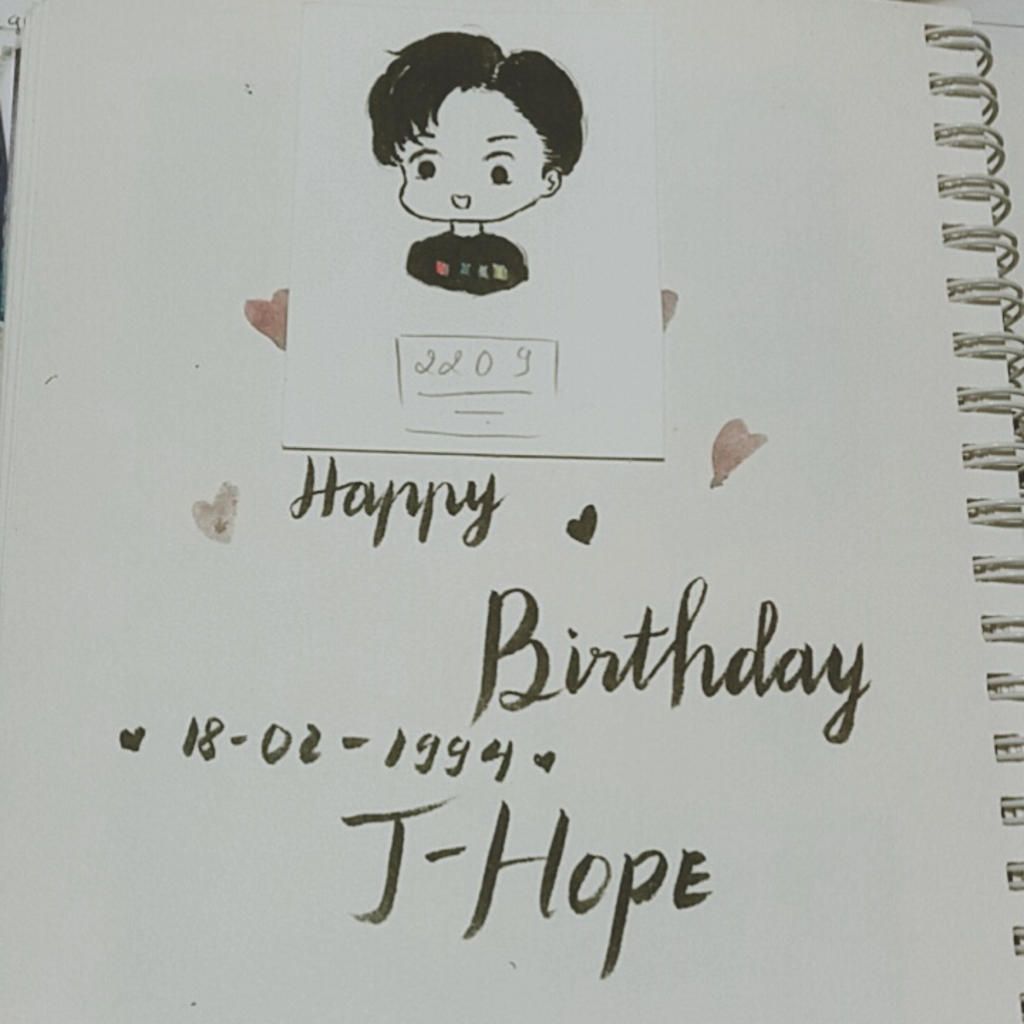 2209
Happy
Birthday
18-02-1994
J-Hope